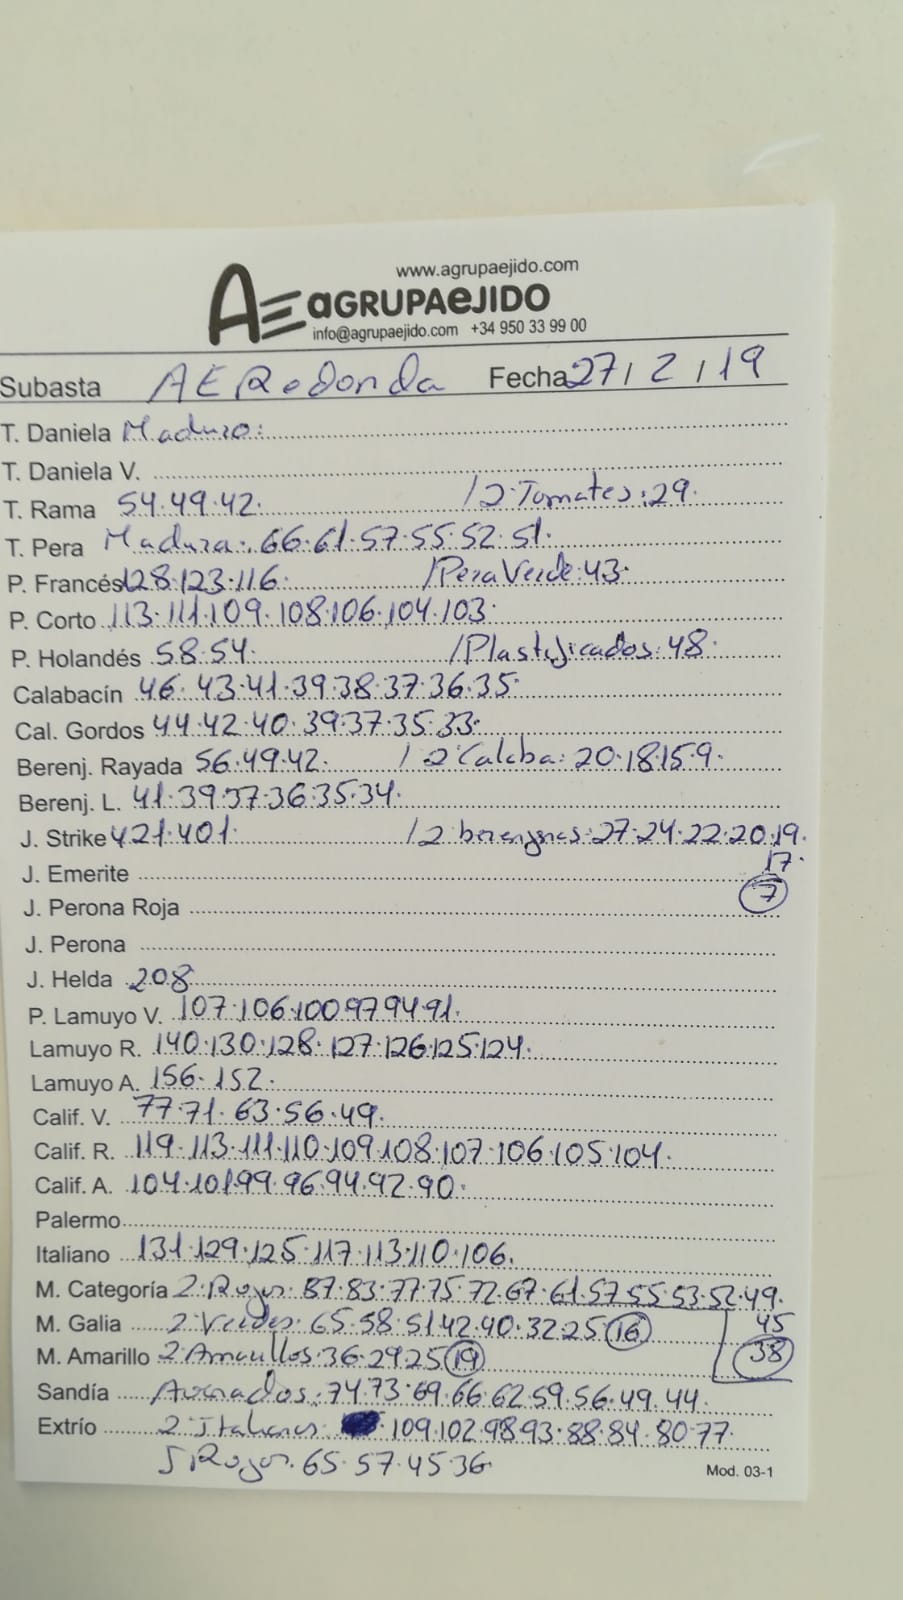 www.agrupaejido.com
AE aGRUPAeJIDO
info@agrupaejido.com +34 950 33 99 00
Subasta AERedonda Fecha 27/2/19
T. Daniela Maduro:
T. Daniela V.
T. Rama 54.49.42. /2ªTomates:29.
T. Pera Madura:.66.61.57.55.52.51.
P. Francés 128.123.116. /Pera Verde:43.
P. Corto 113.111.109.108.106.104.103.
P. Holandés 58.54. /Plastificados:48.
Calabacín 46.43.41.39.38.37.36.35.
Cal. Gordos 44.42.40.39.37.35.33.
Berenj. Rayada 56.49.42. /2ªCalaba:20.18.15.9.
Berenj. L. 41.39.37.36.35.34.
J. Strike 421.401. /2ªberengenas:27.24.22.20.19.
17.
J. Emerite
7
J. Perona Roja
J. Perona
J. Helda 208
P. Lamuyo V. 107.106.100.97.94.91.
Lamuyo R. 140.130.128.127.126.125.124.
Lamuyo A. 156.152.
Calif. V. 77.71.63.56.49.
Calif. R. 119.113.111.110.109.108.107.106.105.104.
Calif. A. 104.101.99.96.94.92.90.
Palermo
Italiano 131.129.125.117.113.110.106.
M. Categoría 2ªRojos.87.83.77.75.72.67.61.57.55.53.52.49.
M. Galia 2ªVerdes.65.58.51.42.40.32.25.16 45
M. Amarillo 2ªAmarillos.36.29.25.19 38
Sandía Asurados:74.73.69.66.62.59.56.49.44.
Extrío 2ªItalianos.109.102.98.93.88.84.80.77.
5Rojos.65.57.45.36.
Mod. 03-1